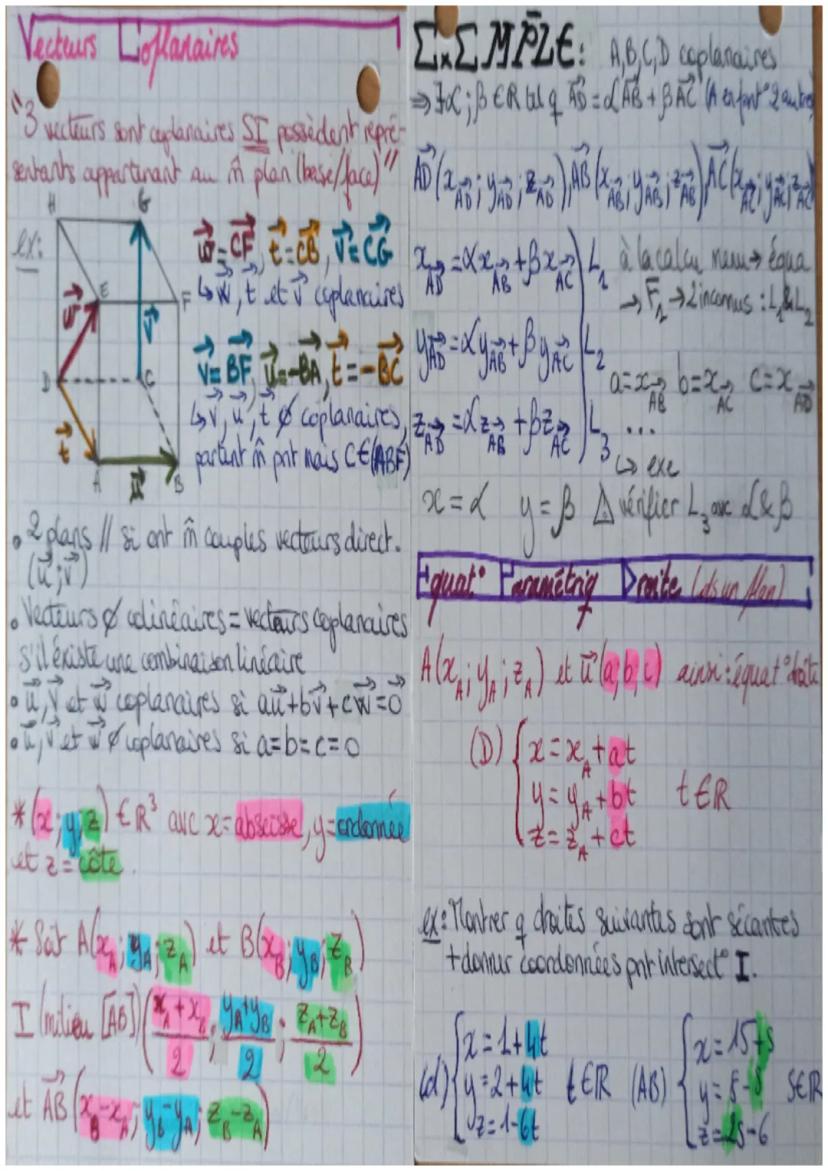 Vecteurs Coplanaires
"3 vecteurs sont coplanaires SI possèdent repré-
sentants appartenant au m̂ plan (base/face)"
ex:
H
G
E
F
D
C
A
B
w⃗
v⃗
t⃗
u⃗
w⃗=CF⃗, t⃗=CB⃗, v⃗=CG⃗
↳ w⃗, t⃗ et v⃗ coplanaires
v⃗=BF⃗, u⃗=-BA⃗, t⃗=-BC⃗
↳ v⃗, u⃗, t⃗ ∅ coplanaires,
partent m̂ pnt mais C∈(ABF)
• 2 plans // si ont m̂ couples vecteurs direct.
(u⃗;v⃗)
• Vecteurs ∅ colinéaires = vecteurs coplanaires
s'il éxiste une combinaison linéaire
• u⃗, v⃗ et w⃗ coplanaires si au⃗+bv⃗+cw⃗=0⃗
• u⃗, v⃗ et w⃗ ∅ coplanaires si a=b=c=0
* (x;y;z) ∈ R³ avec x=abscisse, y=ordonnée
et z=côte.
* Soit A(x_A; y_A; z_A) et B(x_B; y_B; z_B)
I (milieu [AB]) ((x_A+x_B)/2; (y_A+y_B)/2; (z_A+z_B)/2)
et AB⃗ (x_B-x_A; y_B-y_A; z_B-z_A)
ExEMPLE: A,B,C,D coplanaires
⇒ ∃α;β∈R tel q AD⃗=αAB⃗+βAC⃗ (A en font° 2 autres)
AD⃗(x_AD⃗; y_AD⃗; z_AD⃗), AB⃗(x_AB⃗; y_AB⃗; z_AB⃗), AC⃗(x_AC⃗; y_AC⃗; z_AC⃗)
x_AD⃗=αx_AB⃗+βx_AC⃗ L₁
y_AD⃗=αy_AB⃗+βy_AC⃗ L₂
z_AD⃗=αz_AB⃗+βz_AC⃗ L₃
à la calcu menu → équa
→ F₁ → 2 inconnus : L₁&L₂
a=x_AB⃗ b=x_AC⃗ c=x_AD⃗
...
↳ exe
x=α y=β ⚠ vérifier L₃ avec α&β
Equat° Paramétriq Droite (ds un plan)
A(x_A; y_A; z_A) et u⃗(a;b;c) ainsi: équat° droite
(D) { x=x_A+at
y=y_A+bt t∈R
z=z_A+ct
ex: Montrer q droites suivantes sont sécantes
+ donner coordonnées pnt intersect° I.
(d) { x=1+4t
y=2+4t t∈R
z=1-6t
(AB) { x=15+s
y=8-s s∈R
z=2s-6